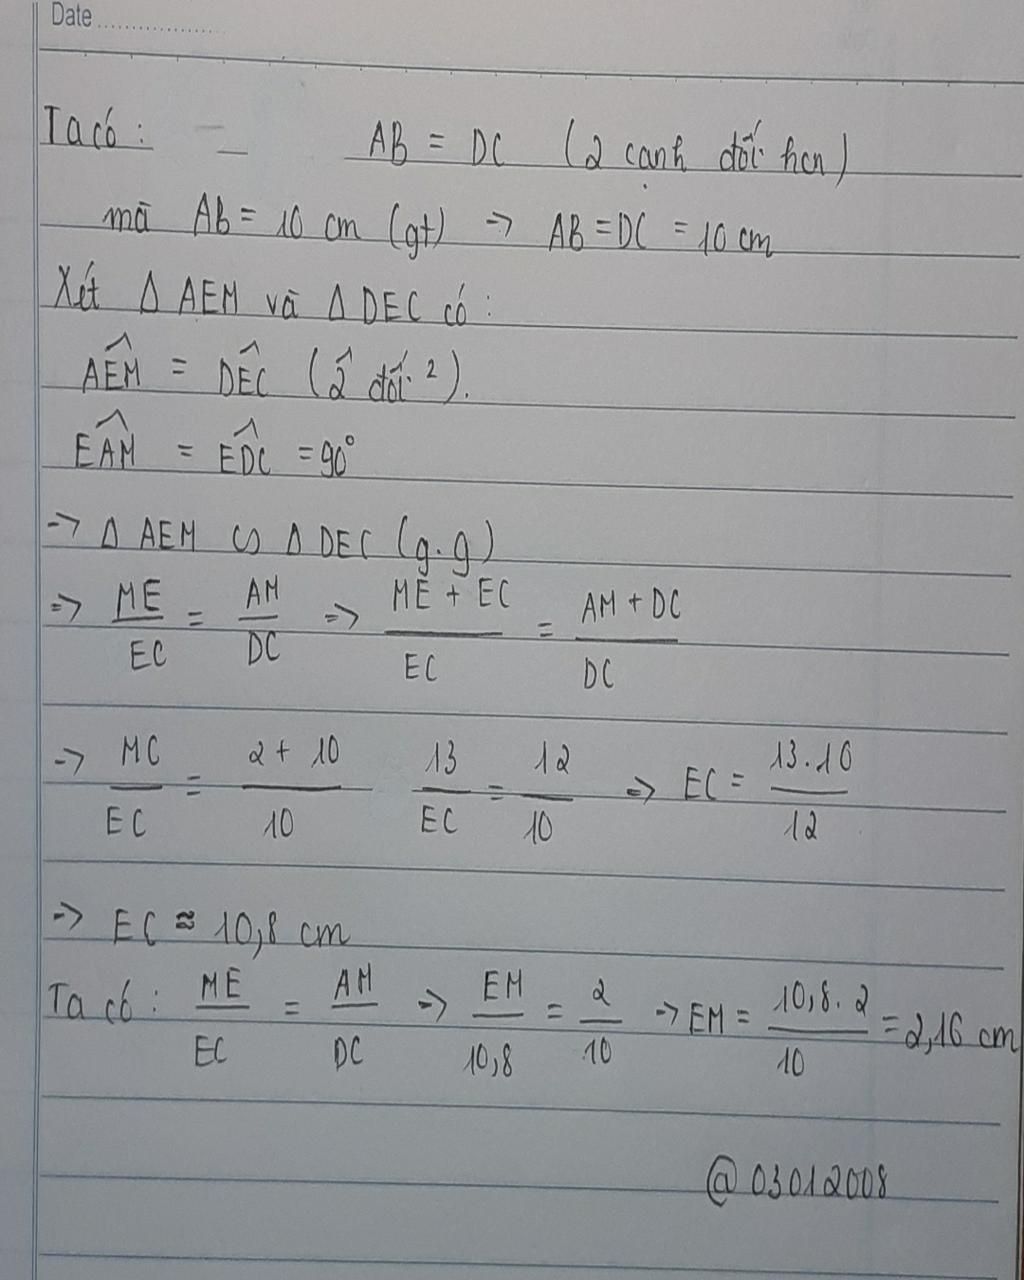 Date
Ta có : AB = DC (2 cạnh đối hcn)
mà Ab = 10 cm (gt) => AB = DC = 10 cm
Xét Δ AEM và Δ DEC có :
AÊM = DÊC (2^ đối ²).
EÂM = ED̂C = 90°
-> Δ AEM ∽ Δ DEC (g.g)
=> ME/EC = AM/DC => (ME + EC)/EC = (AM + DC)/DC
=> MC/EC = (2 + 10)/10 13/EC = 12/10 => EC = 13.10/12
=> EC ≈ 10,8 cm
Ta có : ME/EC = AM/DC => EM/10,8 = 2/10 -> EM = 10,8.2/10 = 2,16 cm
@03012008